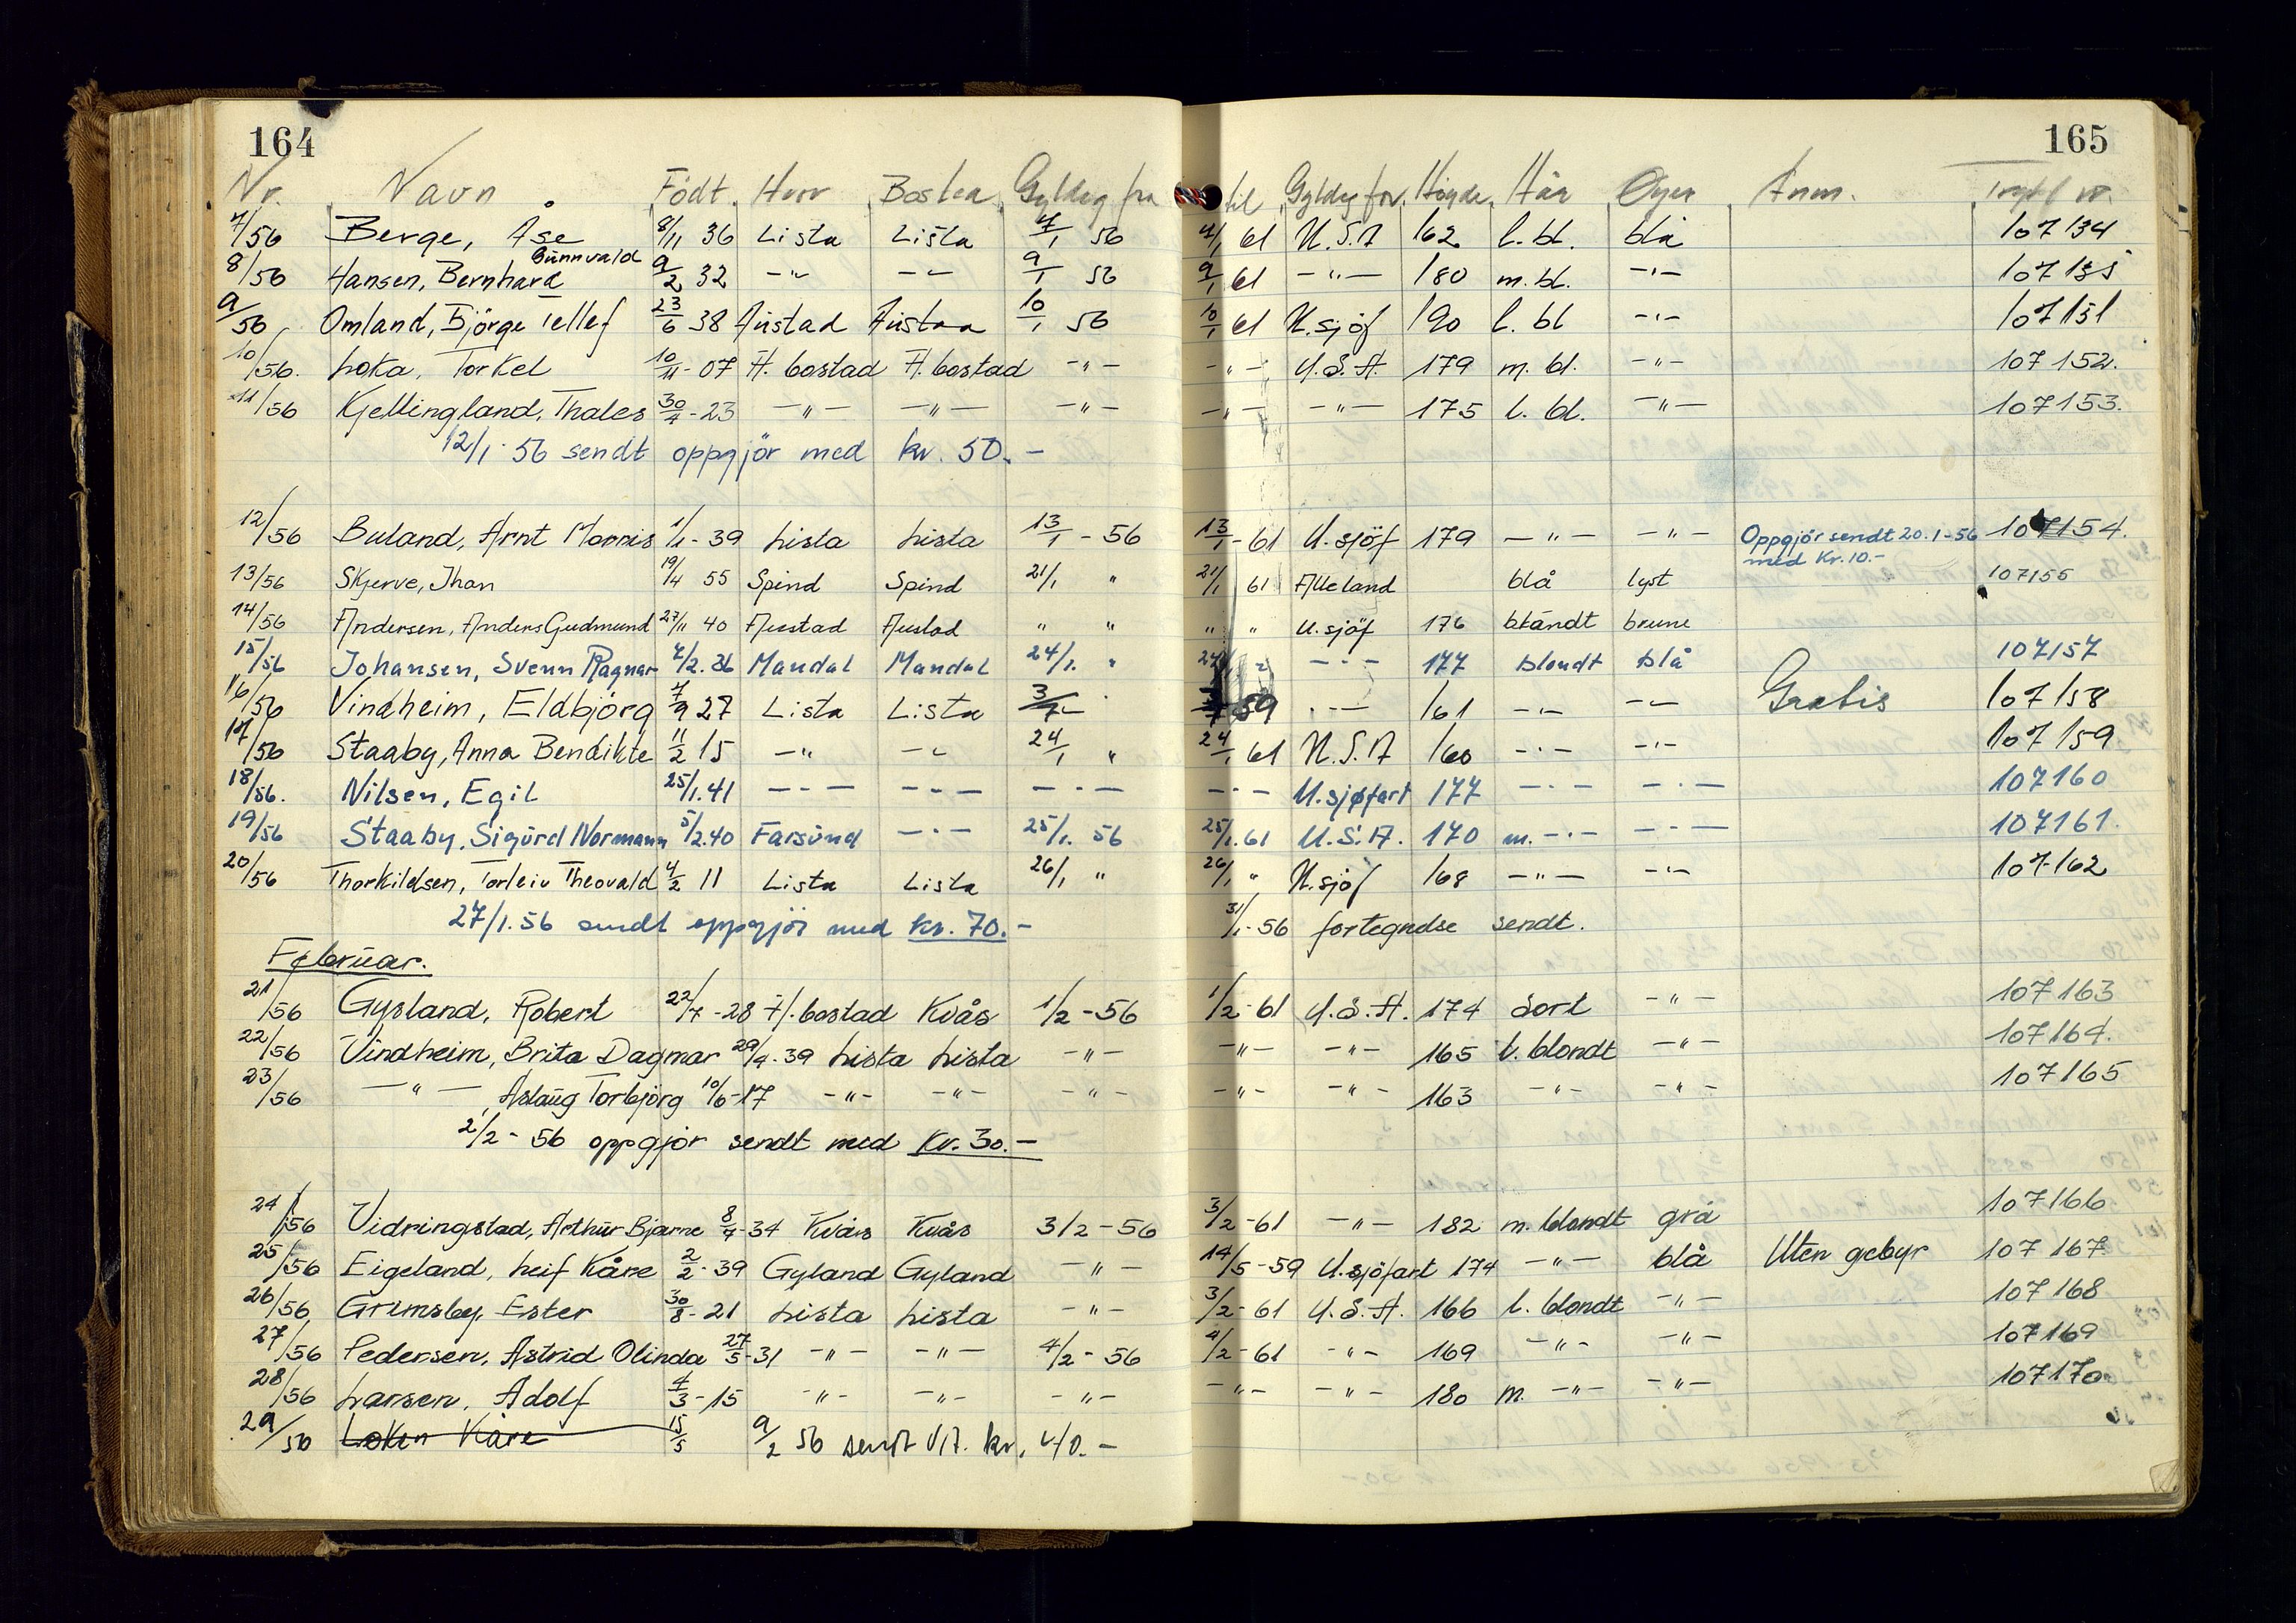 164
165
Nr. Navn Født Hvor Bosted Gyldig fra til Gyldig for Höyde Hår Öyer Anm. nr.
7/56 Berge, Åse 8/11 36 Lista Lista 7/1 56 7/1 61 U.S.A 162 l. bl. blå 107134
8/56 Hansen, Bernhard Gunnvald 9/2 32 -"- -"- 9/1 56 9/1 61 -"- 180 m. bl. -"- 107135
9/56 Omland, Björge Tellef 23/6 38 Austad Austad 10/1 56 10/1 61 U.sjöf 190 l. bl -"- 107151
10/56. Loka, Torkel 10/11-07 H. bostad H. bostad -"- -"- U.S.A. 179 m. bl. -"- 107152.
11/56 Kjellingland, Thales 30/7-23 -"- -"- -"- -"- -"- 175 l. bl. -"- 107153.
12/1-56 sendt oppgjör med kr. 50.-
12/56 Buland, Arnt Morris 1/1-39 Lista Lista 13/1-56 13/1-61 U.sjöf 179 -"- -"- Oppgjör sendt 20.1-56 med Kr.10.- 107154.
13/56 Skjerve, Jhan 19/4 55 Spind Spind 21/1 " 21/1 61 Alle land blå lyst 107155
14/56 Andersen, Anders Gudmund 27/11 40 Austad Austad " " " " U.sjöf 176 blandt brune
15/56 Johansen, Svenn Ragnar 7/2.36 Mandal Mandal 24/1. " 24/1 " -"- 177 blondt blå 107157
16/56 Vindheim, Eldbjörg 7/9 27 Lista Lista 3/7 - 59 -"- 161 -"- -"- Gratis 107158
17/56 Staaby, Anna Bendikte 11/2 15 -"- -"- 24/1 " 24/1 61 U.S.A 160 -"- -"- 107159
18/56. Nilsen, Egil 25/1.41 -"- -"- -"- -"- U.sjøfart 177 -"- -"- 107160
19/56 Staaby, Sigurd Normann 5/2.40 Farsund -"- 25/1. 56 25/1.61 U.S.A. 170 m. -"- -"- 107161.
20/56 Thorkildsen, Torleiv Theovald 4/2 11 Lista Lista 26/1 " 26/1 " U.sjöf 168 -"- -"- 107162
27/1.56 sendt oppgjör med kr. 70.- 31/1-56 fortegnelse sendt.
Februar.
21/56 Gysland, Robert 22/7-28 H. bostad Kvås 1/2-56 1/2-61 U.S.A. 174 Sort -"- 107163
22/56 Vindheim, Brita Dagmar 29/4-39 Lista Lista -"- -"- -"- 165 l. blondt -"- 107164.
23/56 -"- , Aslaug Torbjörg 10/6-17 -"- -"- -"- -"- -"- 163 -"- -"- 107165
2/2-56 oppgjör sendt med Kr. 30.-
24/56 Vidringstad, Arthur Bjarne 8/7-34 Kvås Kvås 3/2-56 3/2-61 -"- 182 m. blondt grå 107166
25/56 Eigeland, Leif Kåre 2/2-39 Gyland Gyland -"- 14/5-59 U.sjöfart 174 -"- blå Uten gebyr 107167
26/56 Grimsby, Ester 30/8-21 Lista Lista -"- 3/2-61 U.S.A. 166 l. blondt -"- 107168
27/56 Pedersen, Astrid Olinda 27/5-31 -"- -"- 4/2-56 4/2-61 -"- 169 -"- -"- 107169
28/56 Larsen, Adolf 4/3-15 -"- -"- -"- -"- -"- 180 m. -"- -"- 107170
29/56 Løken Kåre 15/5 9/2 56 sendt kr. 40.-